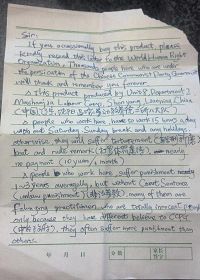 Sir:
If you occassionally buy this product, please
kindly resend this letter to the World Human Right
Organization. Thousands people here who are under
the persicution of the Chinese Communist Party Government
will thank and remember you forever.
This product produced by Unit 8, Department 2
Mashanjia Labour Camp, Shenyang, Liaoning, China
(中国,辽宁,沈阳,马三家
people who work here, have to work 15 hours a day
with out Saturday, Sunday break and any holidays,
otherwise, they will suffer torturement
beat and rude remark nearly
no payment (10 yuan/1 month)
people who work here, suffer punishment
1~3 years averagely, but without Court Sentence
(unlaw punishment) many of them are
Falun gong practitioner, who are totally innocent people
only because they have different believe to CCPG
they often suffer more punishment than
others.
年 月 日